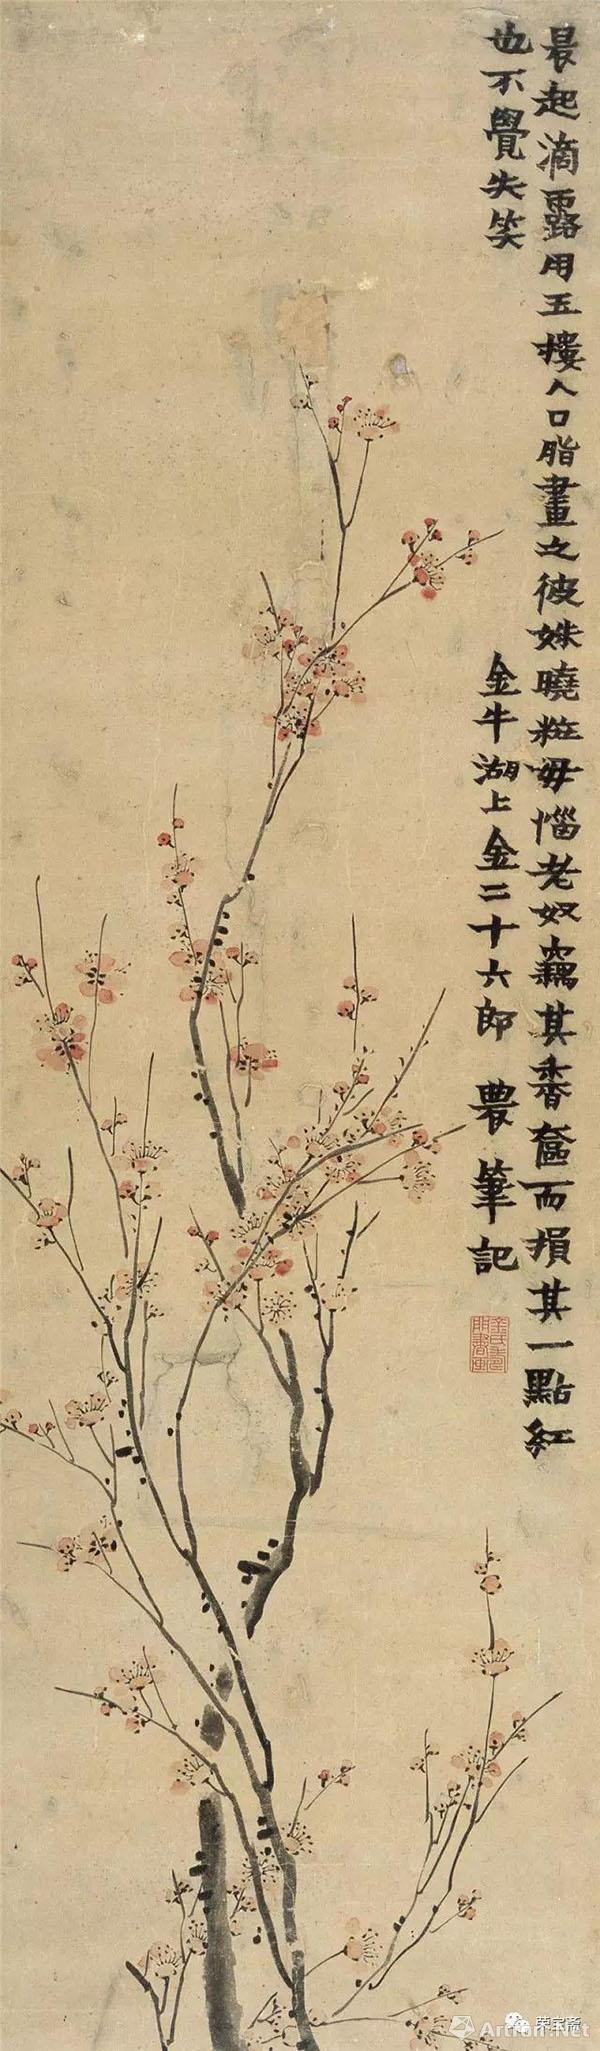 晨起滴露用五樓人口脂畫之彼姝曉粧毋惱老奴竊其香奩而損其一點紅
也不覺失笑
金牛湖上金二十六郎 農筆記
金氏壽門書畫
荣宝斋
Artron.Net